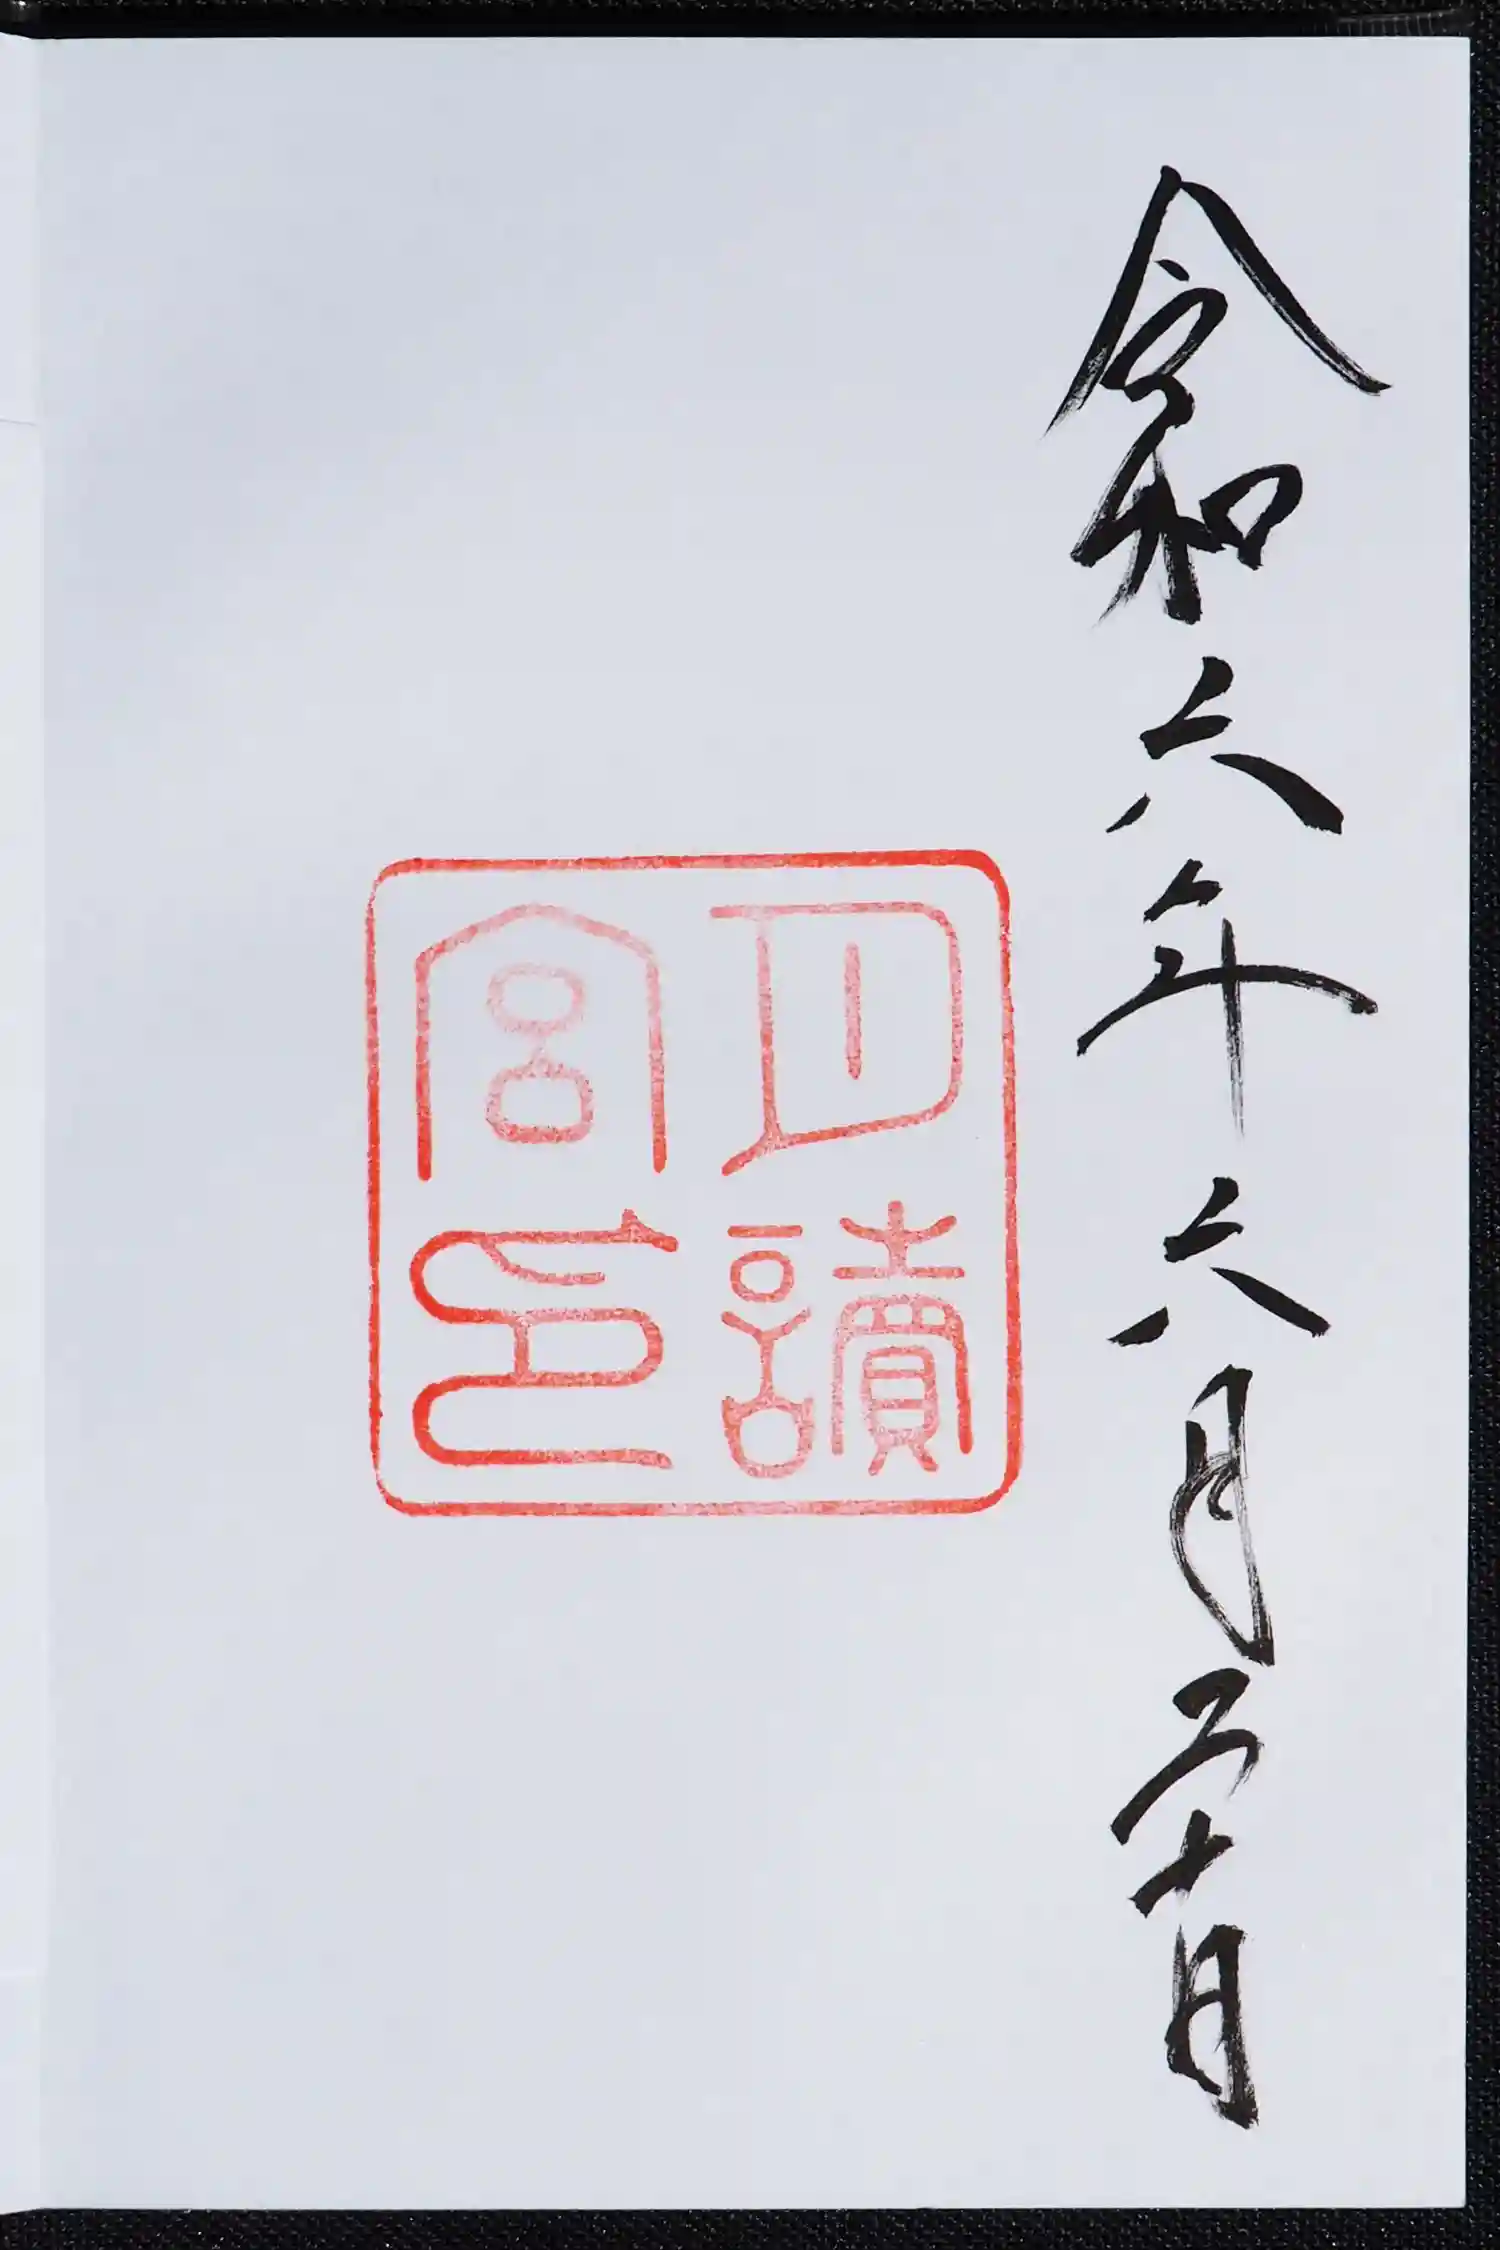 令和六年六月二十日
月讀
宮印